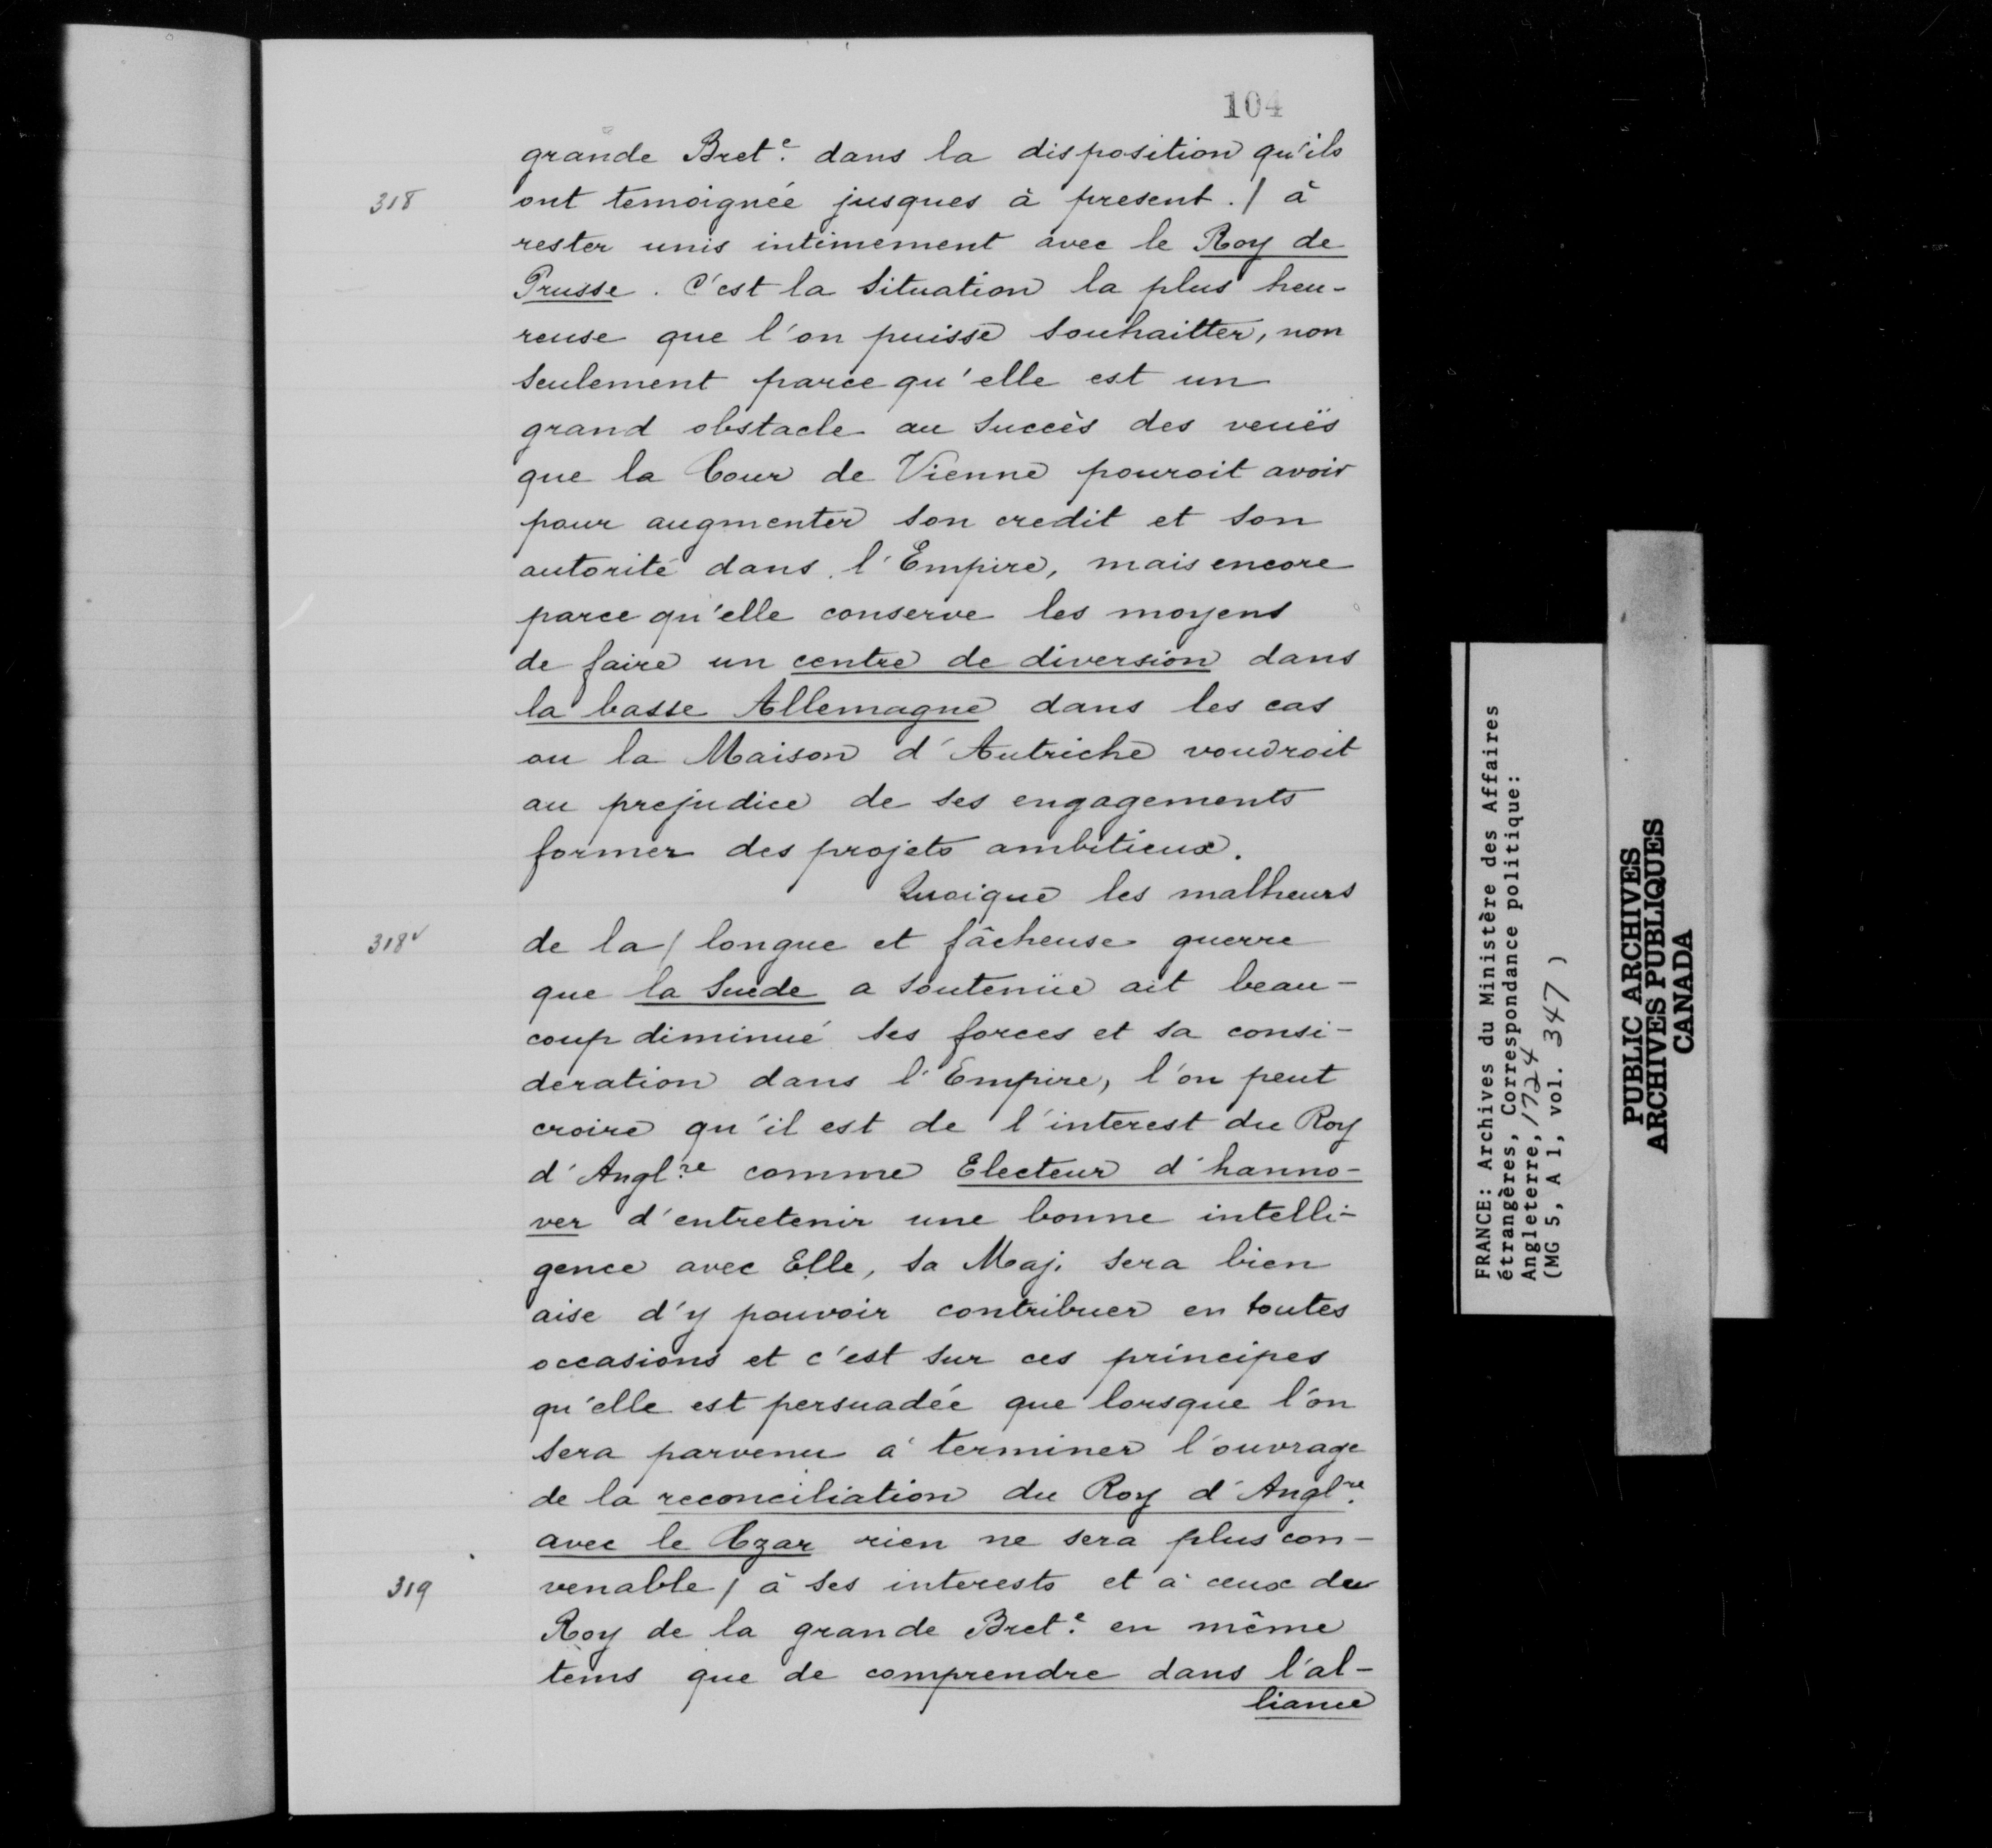 104
grande Bret.e dans la disposition qu'ils
318
ont temoignée jusques à present. / à
rester unis intimement avec le Roy de
Prusse. C'est la Situation la plus heu-
reuse que l'on puisse Souhaitter, non
Seulement parce qu'elle est un
grand obstacle au Succès des veuës
que la Cour de Vienne pouroit avoir
pour augmenter son credit et son
autorité dans l'Empire, mais encore
parce qu'elle conserve les moyens
de faire un centre de diversion dans
la basse Allemagne dans les cas
ou la Maison d'Autriche voudroit
au prejudice de ses engagements
former des projets ambitieux.
Quoique les malheurs
318v
de la / longue et fâcheuse guerre
que la Suede a Soutenüe ait beau-
coup diminué ses forces et sa consi-
deration dans l'Empire, l'on peut
croire qu'il est de l'interest du Roy
d'Angl.re comme Electeur d'hanno-
ver d'entretenir une bonne intelli-
gence avec Elle, sa Maj. sera bien
aise d'y pouvoir contribuer en toutes
occasions et c'est sur ces principes
qu'elle est persuadée que lorsque l'on
sera parvenu à terminer l'ouvrage
de la reconciliation du Roy d'Angl.re
avec le Czar rien ne sera plus con-
319
venable / à ses interests et à ceux du
Roy de la grande Bret.e en même
tems que de comprendre dans l'al-
liance
FRANCE: Archives du Ministère des Affaires
étrangères, Correspondance politique:
Angleterre, 1724
(MG 5, A 1, vol. 347 )
PUBLIC ARCHIVES
ARCHIVES PUBLIQUES
CANADA